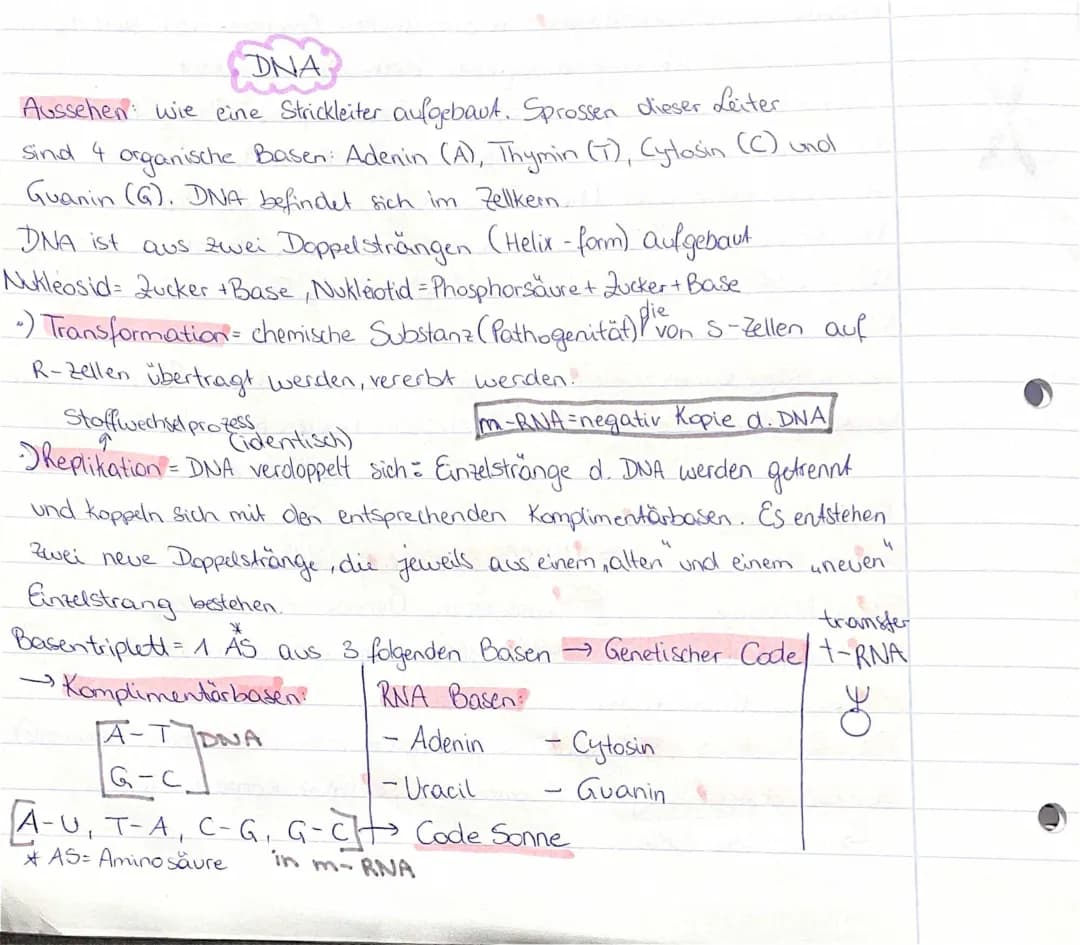 DNA
Aussehen: wie eine Strickleiter aufgebaut. Sprossen dieser Leiter
sind 4 organische Basen: Adenin (A), Thymin (T), Cytosin (C) und
Guanin (G). DNA befindet sich im Zellkern.
DNA ist aus zwei Doppelsträngen (Helix-form) aufgebaut
Nukleosid= Zucker + Base, Nukleotid = Phosphorsäure + Zucker + Base
•) Transformation = chemische Substanz (Pathogenität) die von S-Zellen auf
R-Zellen übertragt werden, vererbt werden.
Stoffwechselprozess
m-RNA = negativ Kopie d. DNA
(identisch)
•) Replikation = DNA verdoppelt sich = Einzelstränge d. DNA werden getrennt
und koppeln sich mit den entsprechenden Komplimentärbasen. Es entstehen
zwei neue Doppelstränge, die jeweils aus einem „alten“ und einem „neuen“
Einzelstrang bestehen.
Basentriplett = 1 AS* aus 3 folgenden Basen → Genetischer Code
transfer
t-RNA
→ Komplimentärbasen:
A-T DNA
G-C
RNA Basen:
- Adenin - Cytosin
- Uracil - Guanin
[A-U, T-A, C-G, G-C] → Code Sonne
* AS = Aminosäure in m-RNA